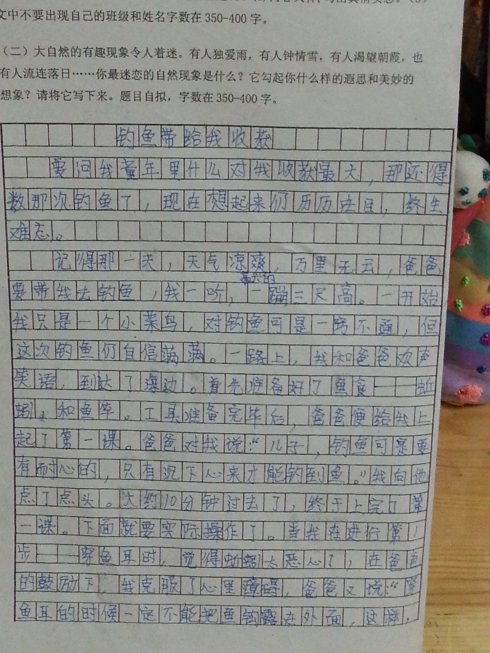 文中不要出现自己的班级和姓名字数在350-400字。
（二）大自然的有趣现象令人着迷。有人独爱雨，有人钟情雪，有人渴望朝霞，也
有人流连落日……你最迷恋的自然现象是什么？它勾起你什么样的遐思和美妙的
想象？请将它写下来。题目自拟，字数在350-400字。
钓鱼带给我收获
要问我童年里什么对我收获最大，那还得
数那次钓鱼了，现在想起来们历历在目，终生
难忘。
记得那一天，天气凉爽，万里无云，爸爸
要带我去钓鱼，我一听，一蹦三尺高。一开始
我只是一个小菜鸟，对钓鱼可是一窍不通，但
这次钓鱼们自信满满。一路上，我和爸爸欢声
笑语，到达了海边。首先准备好了鱼食——蚯
蚓、和鱼竿。工具准备完毕后，爸爸便给我上
起了第一课。爸爸对我说：“儿子，钓鱼可是要
有耐心的，只有沉下心来才能钓到鱼。”我向他
点了点头。大约10分钟过去了，终于上完了第
一课。下面就要实际操作了。当我在进行第1
步——穿鱼耳时，觉得蚯蚓太恶心了，在爸爸
的鼓励下 我克服了心里障碍，爸爸又说：“穿
鱼耳的时候一定不能把鱼钩露在外面，这样，